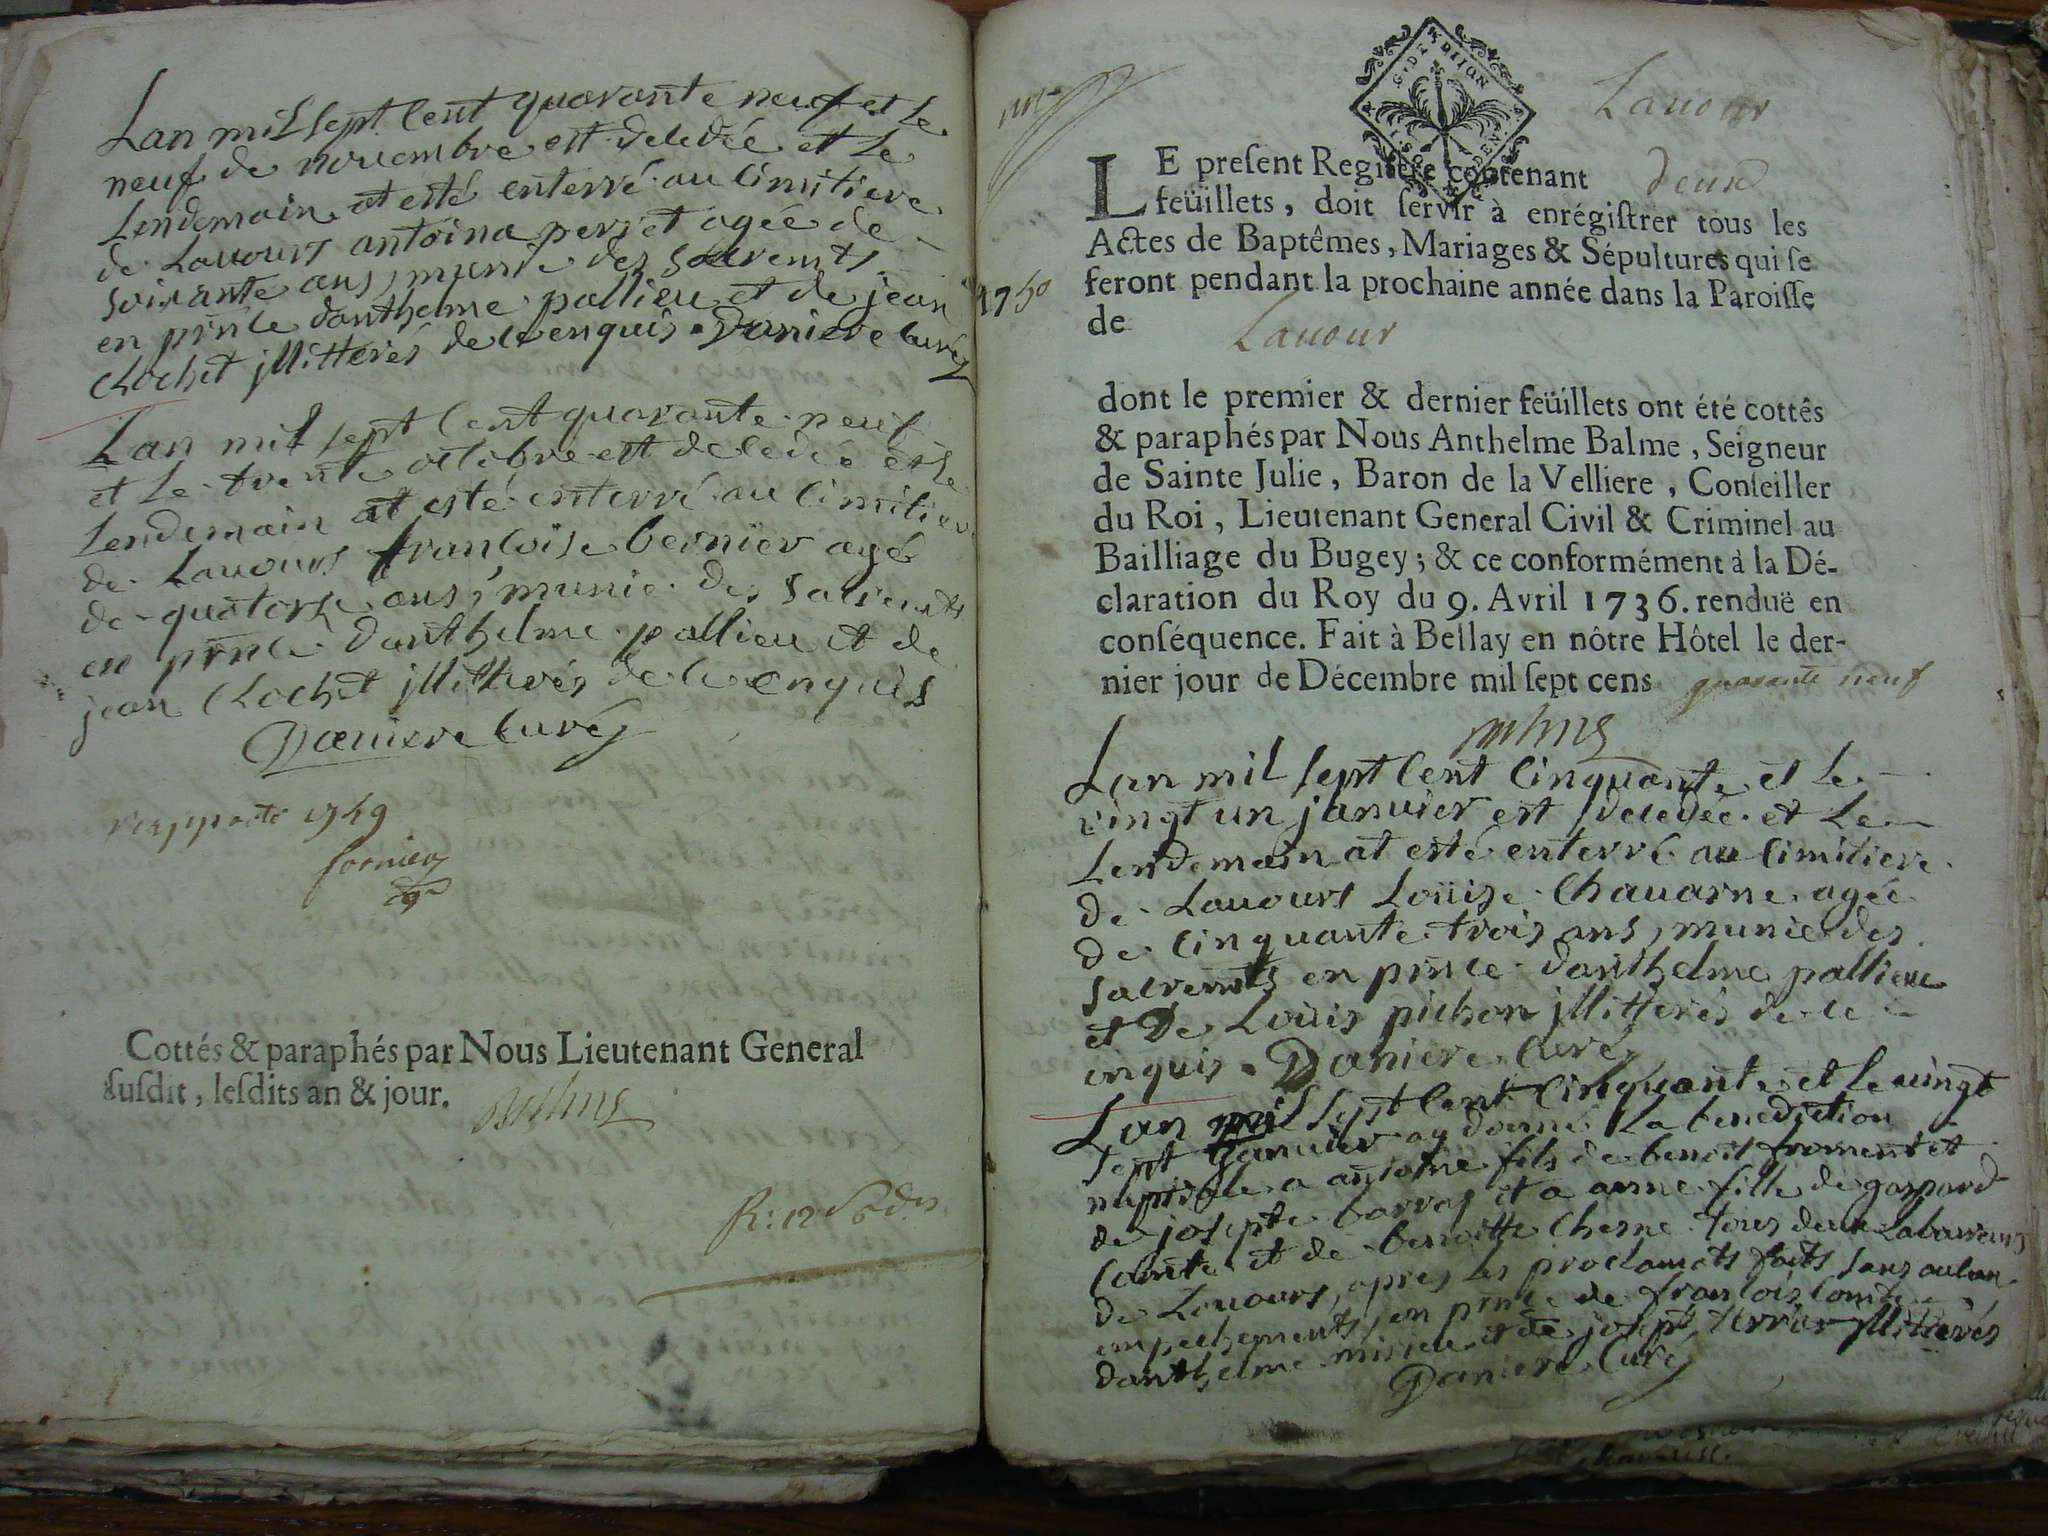 Lan mil sept Cent quarante neuf et Le
neuf de novembre est deledée et Le
Lendemain at esté enterré au Cimitiere
de Lauours antoina perret agée de
soixante ans, munie des Sacremts
en prñce danthelme pallieu et de jean
Clochet jllitterés de ce enquis. Daniere Curé
Lan mil sept Cent quarante neuf
et Le trente octobre est deledée et Le
Lendemain at esté enterré au Cimitiere
de Lauours françoise bernier agé
de quatorse ans, munie des Sacremts
en prñce danthelme pallieu et de
jean Clochet jllitterés de ce enquis
Daniere Curé
rapporté 1749
Cottés & paraphés par Nous Lieutenant General
susdit, lesdits an & jour.
1750
G. DE DIJON
Lauour
LE present Registre contenant deux
feüillets, doit servir à enrégistrer tous les
Actes de Baptêmes, Mariages & Sépultures qui se
feront pendant la prochaine année dans la Paroisse
de Lauour
dont le premier & dernier feüillets ont été cottés
& paraphés par Nous Anthelme Balme, Seigneur
de Sainte Julie, Baron de la Velliere, Conseiller
du Roi, Lieutenant General Civil & Criminel au
Bailliage du Bugey; & ce conformément à la Dé-
claration du Roy du 9. Avril 1736. renduë en
conséquence. Fait à Bellay en nôtre Hôtel le der-
nier jour de Décembre mil sept cens quarante neuf
Lan mil sept Cent Cinquante et Le
vingt un janvier est deledée et Le
Lendemain at esté enterré au Cimitiere
de Lauours Loüise Chauarne agée
de Cinquante trois ans, munie des
sacremts en prñce danthelme pallieu
et De Loüis pichon jllitterés de ce
enquis. Daniere Curé
Lan mil sept Cent Cinquante et Le vingt
sept Janvier ay donné La benediction
nuptiale a antoine fils de benoit froment et
de josepte barras et a anne fille de gaspard
Comte et de benoitte Cherne tous deux Laboureurs
de Lauours, apres Les proclamats faits sans aucun
empechements, en prñce de françois Comte
danthelme misieu et de joseph terrier jllitterés
Daniere Curé